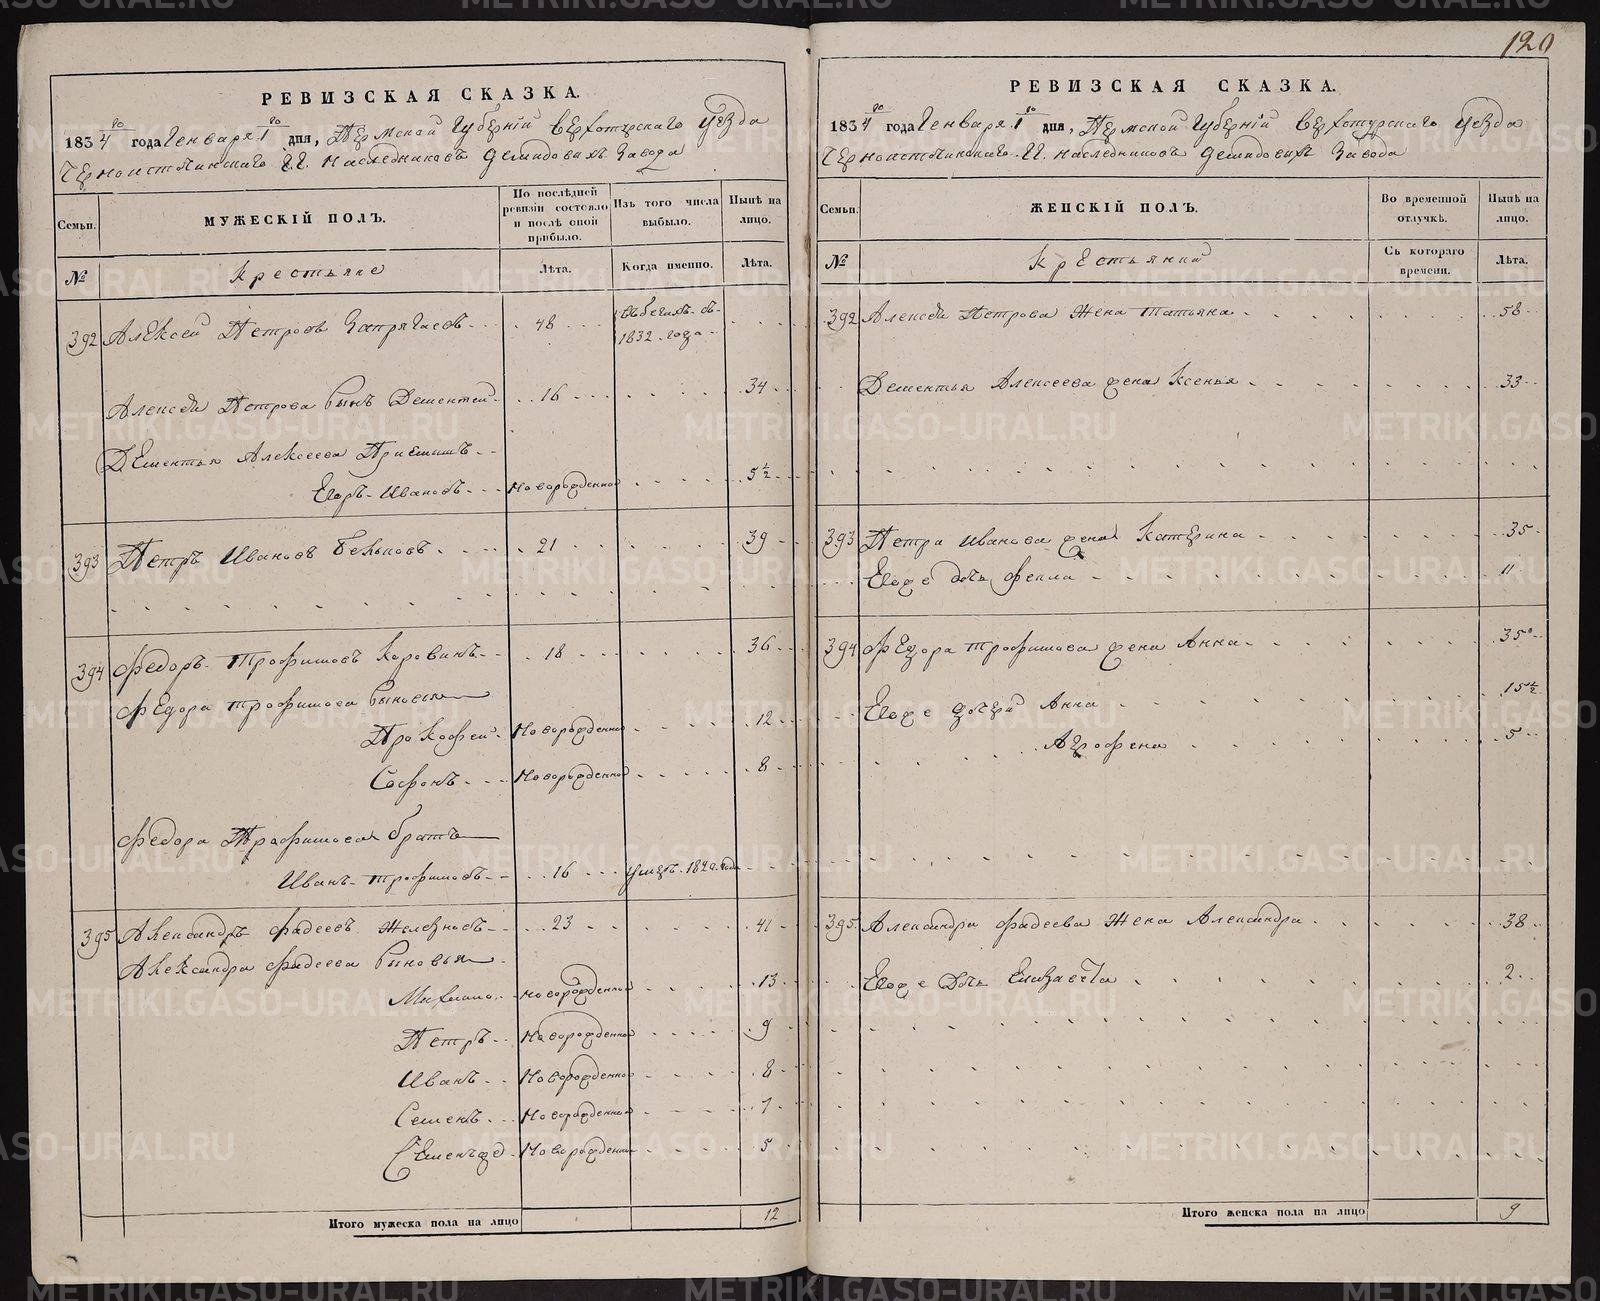 120
РЕВИЗСКАЯ СКАЗКА.
1834го года Генваря 1го дня, Пермской Губернїи Верхотурскаго Уезда
Черноистминскаго Г.Г. наследниковъ Демидовыхъ Завода
Семьи.
МУЖЕСКІЙ ПОЛЪ.
По послѣдней ревизіи состояло и послѣ оной прибыло.
Изъ того числа выбыло.
Нынѣ на лицо.
№
Крестьяне
Лѣта.
Когда именно.
Лѣта.
392 Алексей Петровъ 48 в бегахъ съ 1832 года
Алексея Петрова сынъ Дементей 16 34
Дементья Алексеева Приемышъ
Егоръ Ивановъ Новорожденной 5 1/2
393 Петръ Ивановъ 21 39
394 Федоръ Трофимовъ Коровинъ 18 36
Федора Трофимова сыновья
Прокофей Новорожденной 12
Софонъ Новорожденной 8
Федора Трофимова братъ
Иванъ Трофимовъ 16 умеръ 1820 года
395 Александръ Фадеевъ Железновъ 23 41
Александра Фадеева сыновья
Михаило Новорожденной 13
Петръ Новорожденной 9
Иванъ Новорожденной 8
Семенъ Новорожденной 7
Семенъ же Новорожденной 5
Итого мужеска пола на лицо 12
РЕВИЗСКАЯ СКАЗКА.
1834го года Генваря 1го дня, Пермской Губернїи Верхотурскаго Уезда
Г.Г. наследниковъ Демидовыхъ Завода
Семьи.
ЖЕНСКІЙ ПОЛЪ.
Во временной отлучкѣ.
Нынѣ на лицо.
№
Крестьянки
Съ котораго времени.
Лѣта.
392 Алексея Петрова жена Татьяна 58
Дементья Алексеева жена Ксенья 33
393 Петра Иванова жена Катерина 35
Егоже дочь Фекла 11
394 Федора Трофимова жена Анна 35
Егоже дочери Анна 15 1/2
Агрофена 5
395 Александра Фадеева жена Александра 38
Егоже дочь Елизавета 2
Итого женска пола на лицо 9
METRIKI.GASO-URAL.RU